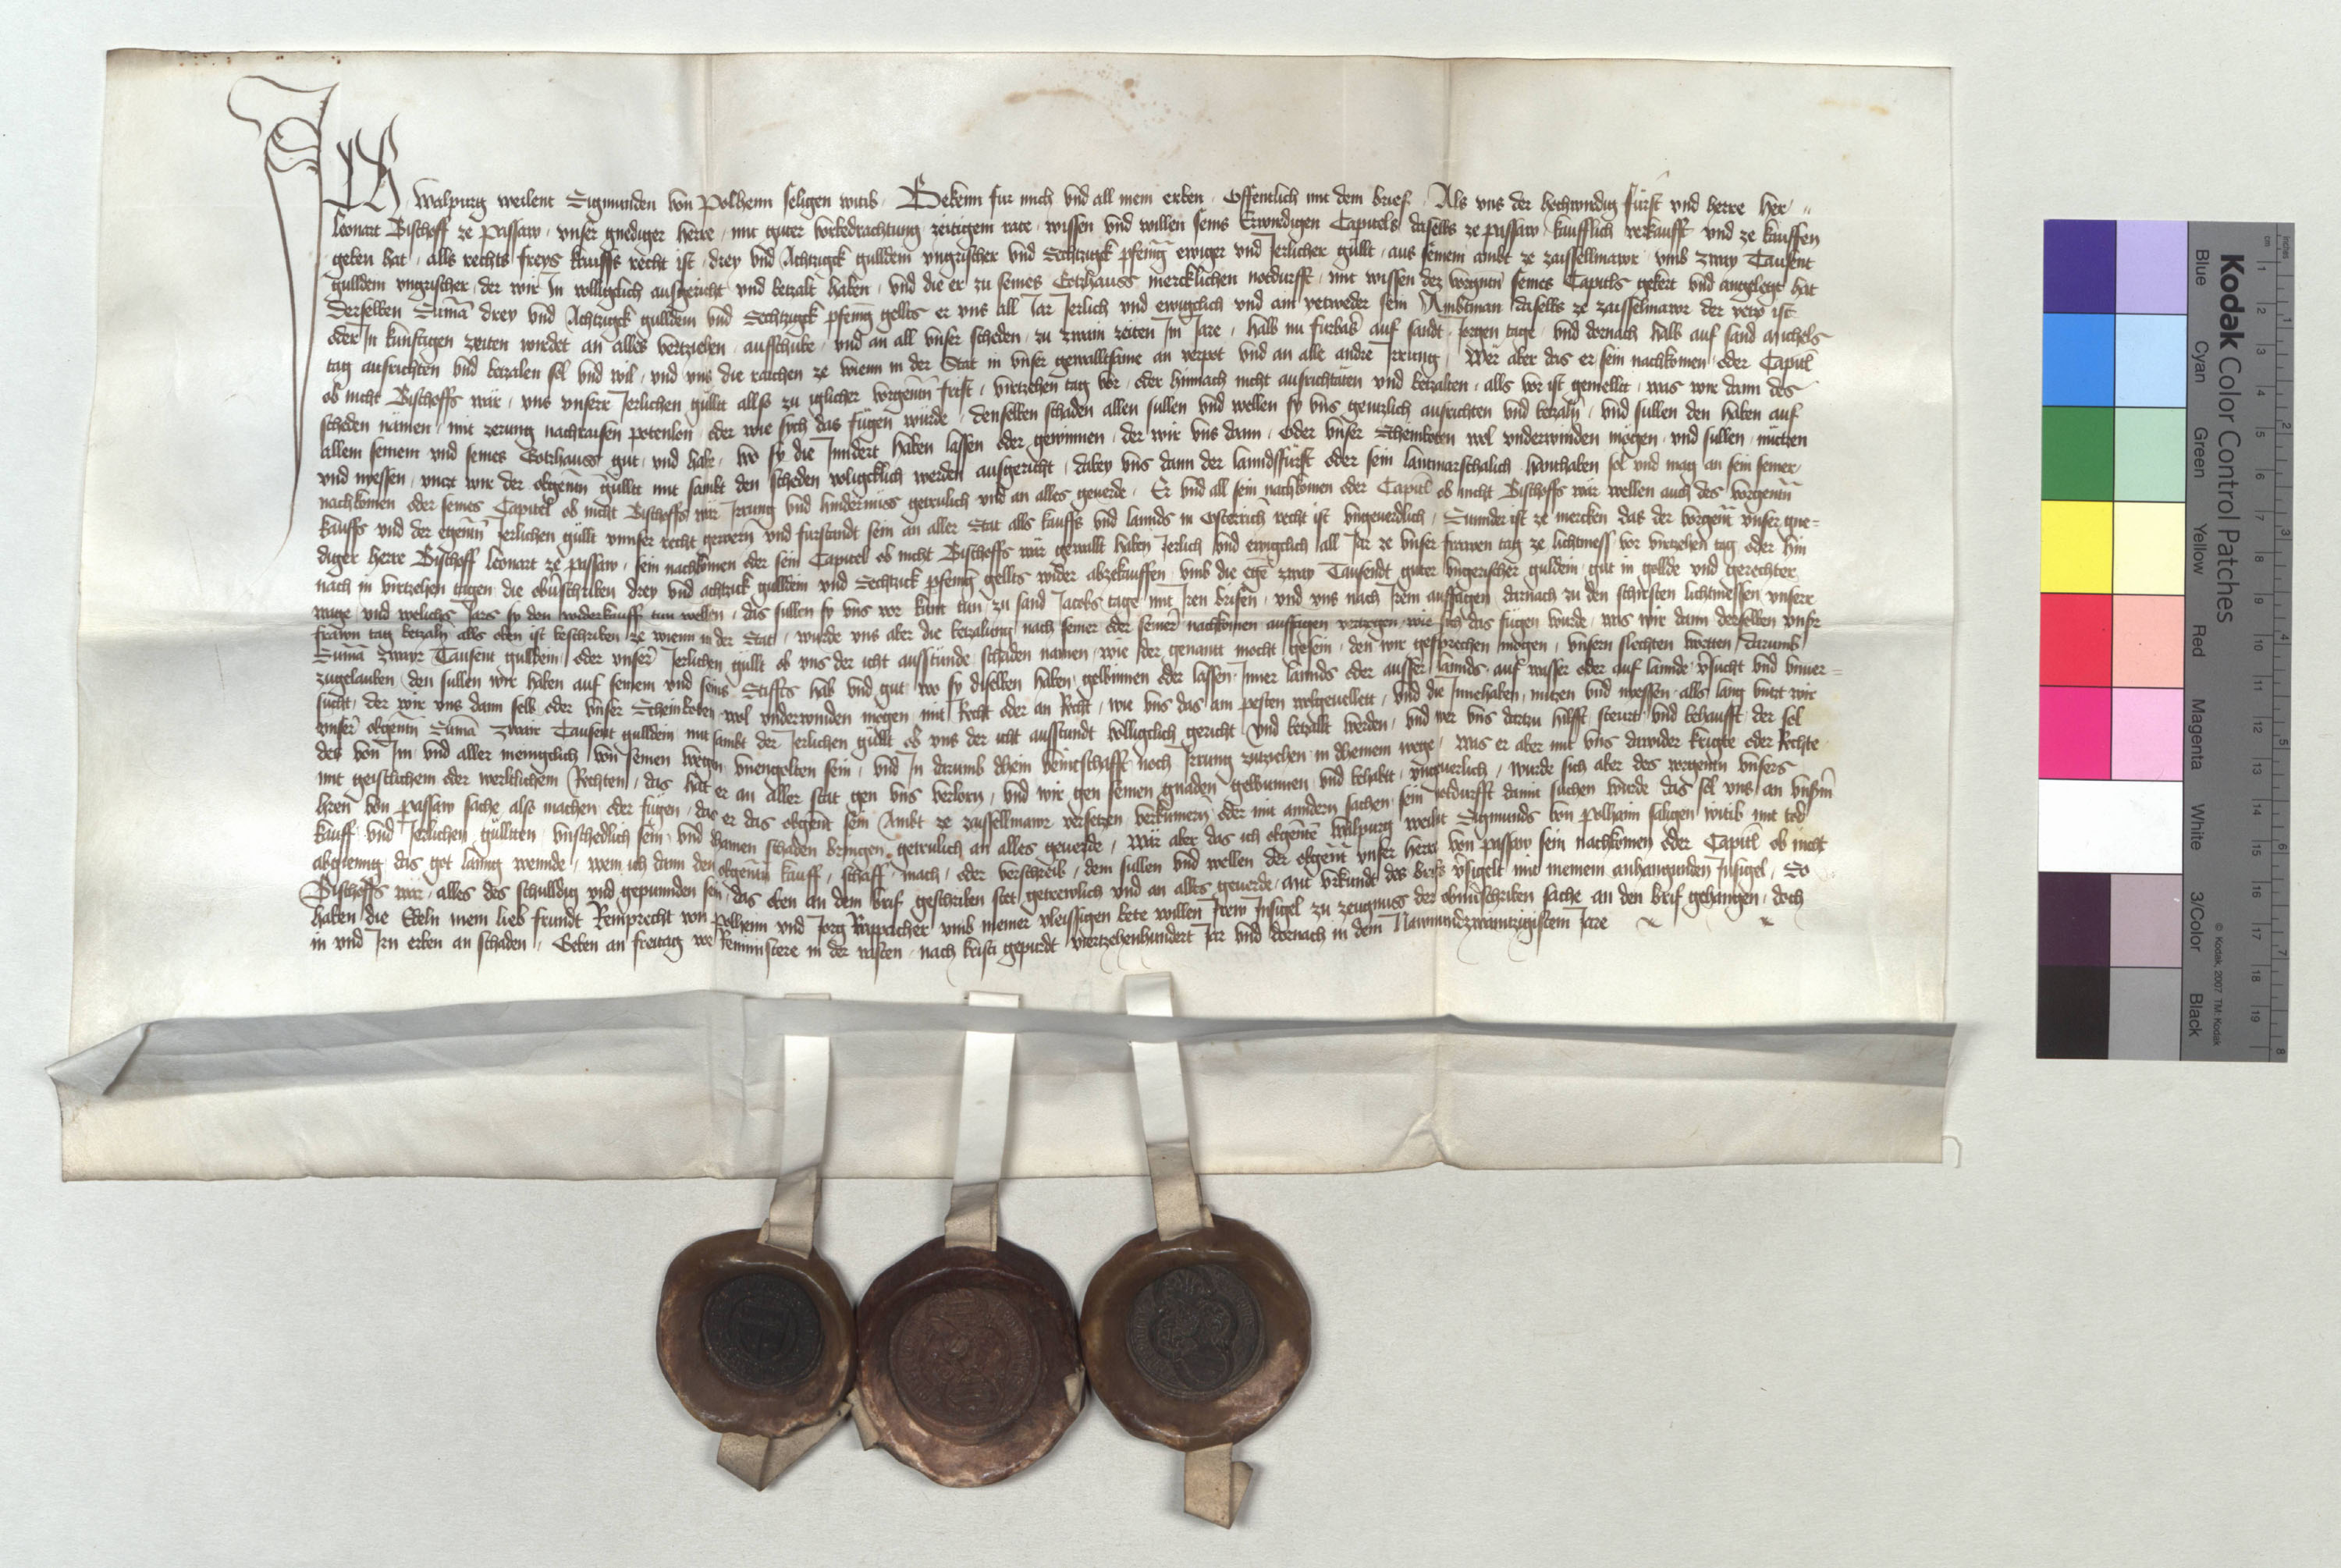 Ich Walpurg weilent Sigmunden von Polhenn seligen witib Bekenn fur mich vnd all mein erben Offentlich mit dem brief Als vns der hochwirdig fürst vnd herre her
Leonart Bischoff ze passaw vnser gnediger herre mit guter vorbedrachtung zeitigem rate wissen vnd willen seins Erwirdigen Capitels daselbs ze passaw kaufflich verkaufft vnd ze kauffen
geben hat alls rechts freys kauffs recht ist drey vnd Achtzigk gulldein vngrischer vnd Sechtzigk pfennig ewiger vnd Jerlicher güllt aus seinem ambt ze zaissellmawr vmb zway Tausent
gulldein vngrischer der wir In volliglich ausgericht vnd betzalt haben vnd die er zu seines Gotzhauss mercklichen notdurfft mit wissen des vorgenn seines Capitls gekert vnd angelegt hat
Derselben Suma drey vnd Achtzigk gulldein vnd Sechtzigk pfennig gellts er vns all Jar Jerlich vnd ewiglich vnd ain yetweder sein Ambtman daselbs ze zaisselmawr der yetz ist
oder In künftigen zeiten wirdet an alles vertziehen aufschübe vnd an all vnser scheden zu zwain zeiten Im Jare halb nu furbas auf sandt Jorgen tage vnd dornach halb auf sand Michels
tag ausrichten vnd betzalen sol vnd wil vnd vns die raichen ze wienn in der Stat in vnser gewalltsame an verpot vnd an alle andre Irrung Wer aber das er sein nachkomen oder Capitl
ob nicht Bischoffs wär vns vnsere Jerlichen güllt allso zu iglicher vorgenn frist virtzehen tag vor oder hinnach nicht ausrichtäten vnd betzalten alls vor ist gemellt was wir dann des
scheden nämen mit zerung nachraisen potenlon oder wie sich das fügen würde denselben schaden allen sullen vnd wellen sy vns gentzlich ausrichten vnd betzaln vnd sullen den haben auf
allem seinem vnd seines Gotzhauss gut vnd hab wo sy die Inndert haben lassen oder gewinnen der wir vns dann oder vnser Scheinboten wol vnderwinden mögen vnd sullen nützen
vnd niessen vntz wir der obgenn güllt mit sambt den scheden voligcklich werden ausgericht dabey vns dann der lanndsfürst oder sein lantmarschalich hanthaben sol vnd mag an sein seiner
nachkomen oder seines Capitel ob nicht Bischoffs wär Irrung vnd hindernüss getrulich vnd an alles geuerde Er vnd all sein nachkomen oder Capitl ob nicht Bischoffs wär wellen auch des vorgenn
kauffs vnd der egenn Jerlichen güllt vnnser recht gewern vnd fürstandt sein an aller Stat alls kauffs vnd lannds in Osterrich recht ist vngeuerdlich Sunnder ist ze mercken das der vorgent vnser gne=
diger herre Bischoff Leonart ze passaw sein nachkomen oder sein Capitel ob nicht Bischoffs wär gewallt haben Jerlich vnd ewiglich all Jar ze vnser frawen tag ze lichtmess vor virtzehen tag oder hin
nach in virtzehen tagen die obnschriben drey vnd achtzick gulldein vnd Sechtzick pfennig gellts wider abzekauffen vmb die ege zway Tausendt guter vngerischer guldein gut in gollde vnd gerechter
wage vnd welichs Jars sy den widerkauff tun wellen das sullen sy vns vor kunt tun zu sand Jacobs tage mit Iren brifen vnd vns nach Irem aufsagen darnach zu den schirsten lichtmessen vnsere
frawn tag betzaln alls oben ist beschriben ze wienn in der Stat wurde vns aber die betzalung nach seiner oder seiner nachkomen aufsagen vertzogen wie sich das fügen wurde was wir dann derselben vnsr
Suma zwayr Tausent gulldein oder vnser Jerlichen güllt ob vns der icht ausstünde schaden namen wie der genantt mocht gesein den wir gesprechen mögen vnsern slechten wortten darumb
zugelauben den sullen wir haben auf seinem vnd seins Stiffts hab vnd gut wo sy diselben haben gewinnen oder lassen Inner lannds oder ausser lannds auf wasser oder auf lannde vsucht vnd vnuer=
sucht der wir vns dann selb oder vnser Scheinboten wol vnderwinden mögen mit Recht oder an Recht wie vns das am pesten wolgeuellet vnd die Innehaben nützen vnd niessen alls lang vntz wir
vnser obgenn Suma zwair Tausent gulldein mit sambt der Jerlichen güllt ob vns der icht ausstundt volliglich gericht vnd betzallt werden vnd wer vns dartzu hilfft steurt vnd behaufft der sol
des von Im vnd aller meniglich von seinen wegen vnengolten sein vnd In darumb dhein veintschafft noch Irrung zutziehen in dheinem wege Was er aber mit vns dawider krigte oder Rechte
mit geistlichem oder werltlichem Rechten das hat er an aller stat gen vns verlorn vnd wir gen seinen gnaden gewunnen vnd behabt vngeuerlich wurde sich aber des vorgenn vnsers
hren von passaw sache also machen oder fügen das er das obgent sein Ambt ze zaissellmawr versetzen verkümern oder mit anndern sachen sein notdurfft damit suchen würde das sol vns an vnsrm
kauff vnd Jerlichen güllten vnschedlich sein vnd dhainen schaden bringen getrulich an alles geuerde Wär aber das ich obgente Walpurg weilnt Sigmunds von polhaim säligen witib mit tod
abgienng das got lanng wennde wem ich dann den obgenn kauff schaff mach oder verschreib dem sullen vnd wellen der obgent vnser herr von passaw sein nachkomen oder Capitl ob nicht
Bischoffs wär alles des schulldig vnd gepunnden sein das oben an dem brif geschriben stet getrewlich vnd an alles geuerde mit vrkundt des brifs vsigelt mit meinem anhangunden Insigel So
haben die Edeln mein lieb frundt Reinprecht von polhenn vnd Jorg vmb meiner vleissigen bete willen Irew Insigel zu zeugnuss der obnnschriben sache an den brif gehangen doch
in vnd Irn erben an schaden Geben an freitag vor Reminiscere in der vasten nach kristi gepurdt viertzehenhundert Jar vnd dornach in dem Nawnundzwaintzigistem Jare
Kodak Color Control Patches
Blue Cyan Green Yellow Red Magenta White 3/Color Black
© Kodak, 2007 TM: Kodak
cm 1 2 3 4 5 6 7 8 9 10 11 12 13 14 15 16 17 18 19
inches 1 2 3 4 5 6 7 8